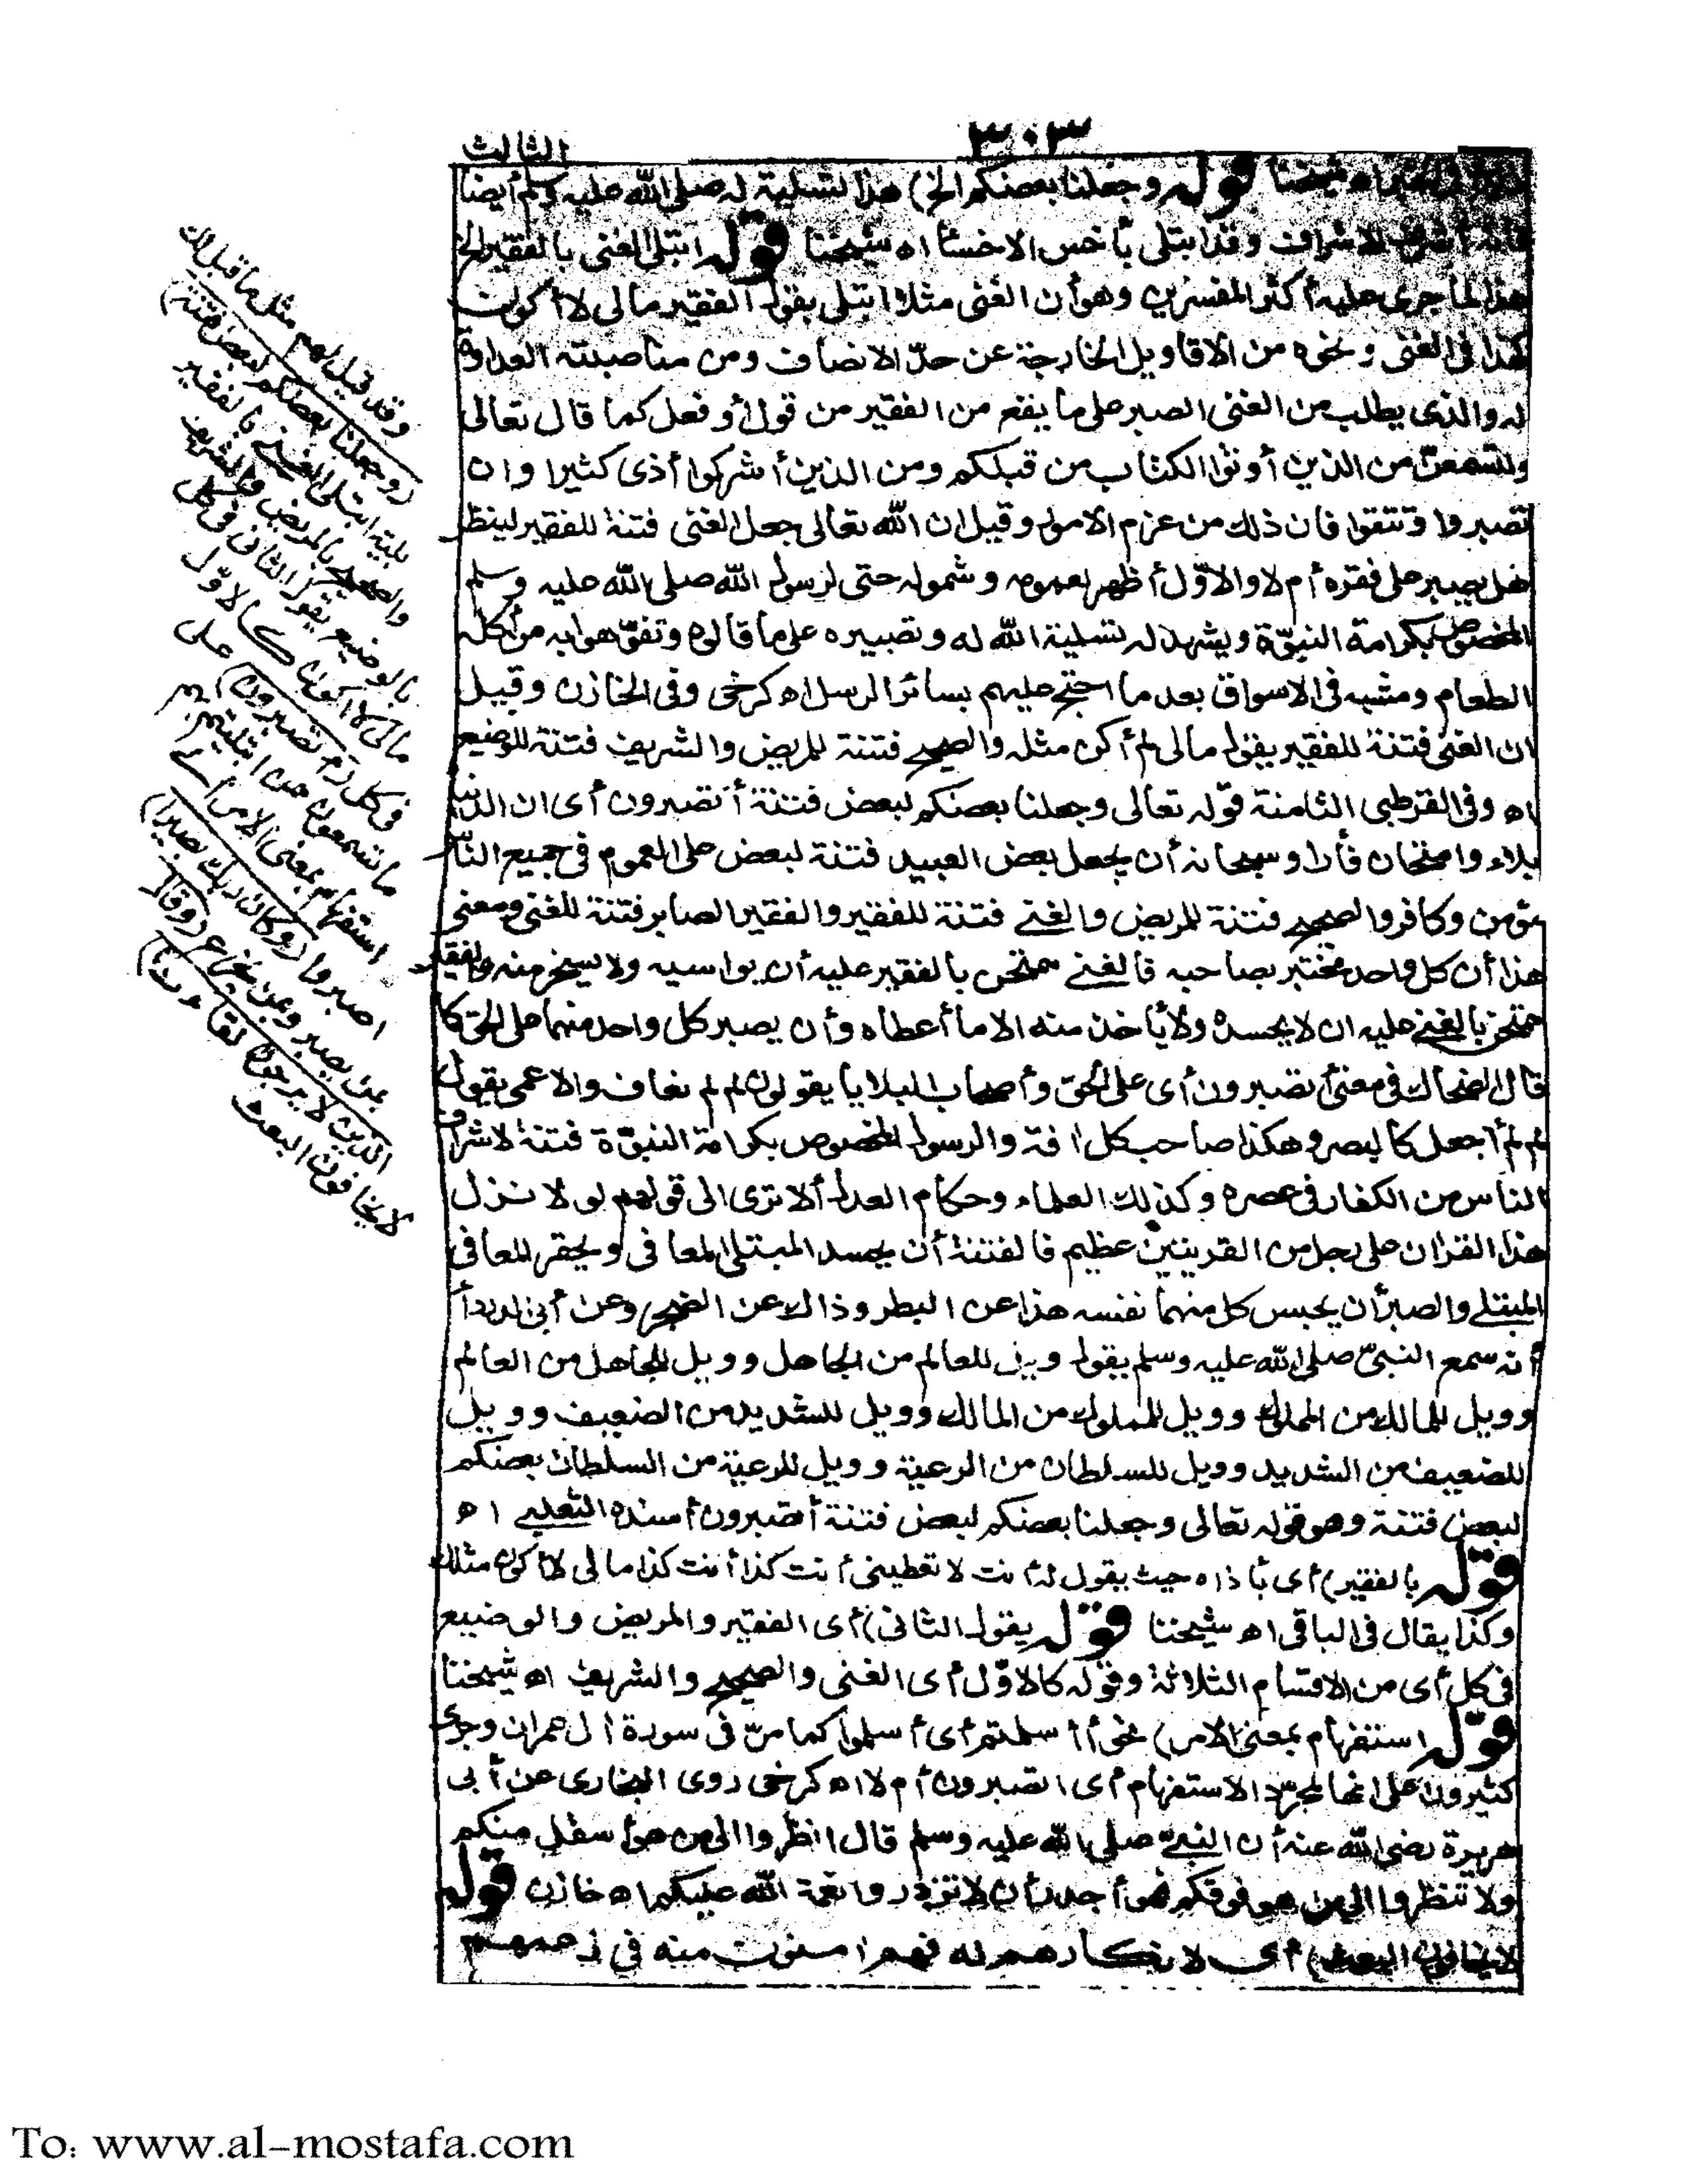 ٣٠٣
الثالث
شيخنا قوله وجعلنا بعضكم الخ) هذا تسلية له صلى الله عليه وسلم أيضا
فانه أشرف الاشراف وقد ابتلى بأخس الاخساء اه شيخنا قوله ابتلى الغنى بالفقير الخ
هذا ما جرى عليه أكثر المفسرين وهو أن الغنى مثلا ابتلى بقول الفقير مالى لا أكون
كهذا فى الغنى ونحوه من الاقاويل الخارجة عن حد الانصاف ومن مناصبته العداوة
له والذى يطلب من الغنى الصبر على ما يقع من الفقير من قول أو فعل كما قال تعالى
ولتسمعن من الذين أوتوا الكتاب من قبلكم ومن الذين أشركوا أذى كثيرا وان
تصبروا وتتقوا فان ذلك من عزم الامور وقيل ان الله تعالى جعل الغنى فتنة للفقير لينظر
هل يصبر على فقره أم لا والاوّل أظهر لعمومه وشموله حتى لرسول الله صلى الله عليه وسلم
المخصوص بكرامة النبوّة ويشهد له تسلية الله له وتصبيره على ما قالوه وتفوّهوا به من أكله
الطعام ومشيه فى الاسواق بعد ما احتج عليهم بسائر الرسل اه كرخى وفى الخازن وقيل
ان الغنى فتنة للفقير يقول مالى لم أكن مثله والصحيح فتنة للمريض والشريف فتنة للوضيع
اه وفى القرطبى الثامنة قوله تعالى وجعلنا بعضكم لبعض فتنة أتصبرون أى ان الدنيا
بلاء وامتحان فأراد سبحانه أن يجعل بعض العبيد فتنة لبعض على العموم فى جميع الناس
مؤمن وكافر والصحيح فتنة للمريض والغنى فتنة للفقير والفقير الصابر فتنة للغنى ومعنى
هذا أن كل واحد مختبر بصاحبه فالغنى ممتحن بالفقير عليه أن يواسيه ولا يسخر منه والفقير
ممتحن بالغنى عليه ان لا يحسده ولا يأخذ منه الا ما أعطاه وأن يصبر كل واحد منهما على الحق كما
قال الضحاك فى معنى أتصبرون أى على الحق وأصحاب البلايا يقولون لم لم نعاف والاعمى يقول
لم لم أجعل كالبصير وهكذا صاحب كل افة والرسول المخصوص بكرامة النبوّة فتنة لاشراف
الناس من الكفار فى عصره وكذلك العلماء وحكام العدل ألا ترى الى قولهم لولا نزل
هذا القران على رجل من القريتين عظيم فالفتنة أن يحسد المبتلى المعافى ويحقر المعافى
المبتلى والصبر أن يحبس كل منهما نفسه هذا عن البطر وذاك عن الضجر وعن أبى الدرداء
أنه سمع النبى صلى الله عليه وسلم يقول ويل للعالم من الجاهل وويل للجاهل من العالم
وويل للمالك من المملوك وويل للمملوك من المالك وويل للشديد من الضعيف وويل
للضعيف من الشديد وويل للسلطان من الرعية وويل للرعية من السلطان بعضكم
لبعض فتنة وهو قوله تعالى وجعلنا بعضكم لبعض فتنة أتصبرون أسنده الثعلبى اه
قوله بالفقير) أى بأذاه حيث يقول له أنت لا تعطينى أنت كذا أنت كذا مالى لا أكون مثلك
وكذا يقال فى الباقى اه شيخنا قوله يقول الثانى) أى الفقير والمريض والوضيع
فى كل أى من الاقسام الثلاثة وقوله كالاوّل أى الغنى والصحيح والشريف اه شيخنا
قوله استفهام بمعنى الامر) نحو أأسلمتم أى أسلموا كما مرّ فى سورة ال عمران وجرى
كثيرون على انها لمجرّد الاستفهام أى اتصبرون أم لا اه كرخى روى البخارى عن أبى
هريرة رضى الله عنه أن النبى صلى الله عليه وسلم قال انظروا الى من هو أسفل منكم
ولا تنظروا الى من هو فوقكم فهو أجدر أن لا تزدروا نعمة الله عليكم اه خازن قوله
لا يخافون البعث) أى لانكارهم له فهم امنون منه فى زعمهم
وقد قيل لهم مثل ما قيل لك
(وجعلنا بعضكم لبعض فتنة)
بلية ابتلى الغنى بالفقير
والصحيح بالمريض والشريف
بالوضيع يقول الثانى فى كل
مالى لا أكون كالاوّل
فى كل (أتصبرون) على
ما تسمعون ممن ابتليتم بهم
استفهام بمعنى الامر أى
اصبروا (وكان ربك بصيرا)
بمن يصبر وبمن يجزع (وقال
الذين لا يرجون لقاءنا)
لا يخافون البعث
To: www.al-mostafa.com